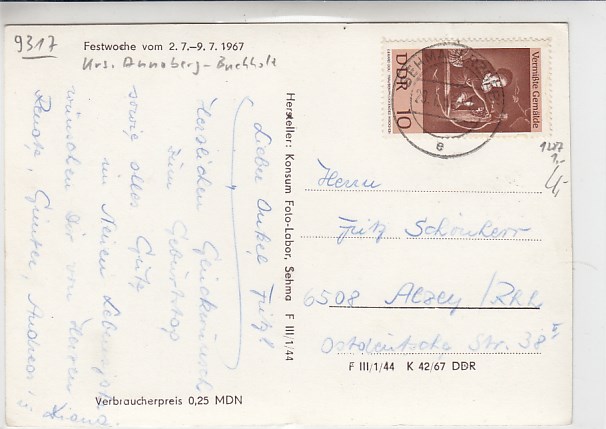 9317
Festwoche vom 2. 7.–9. 7. 1967
Krs. Annaberg-Buchholz
Lieber Onkel Fritz!
Herzlichen Glückwunsch
zum Geburtstag
sowie alles Gute
im Neuen Lebensjahr
wünschen Dir von Herzen
Renate, Günter, Andreas
u. Diana.
Verbraucherpreis 0,25 MDN
Hersteller: Konsum Foto-Labor, Sehma F III/1/44
Vermißte Gemälde
DDR 10
SEHMA
e
1287
1,-
4,-
Herrn
Fritz Schönherr
6508 Alzey/Rhh.
Ostdeutsche Str. 38
F III/1/44 K 42/67 DDR